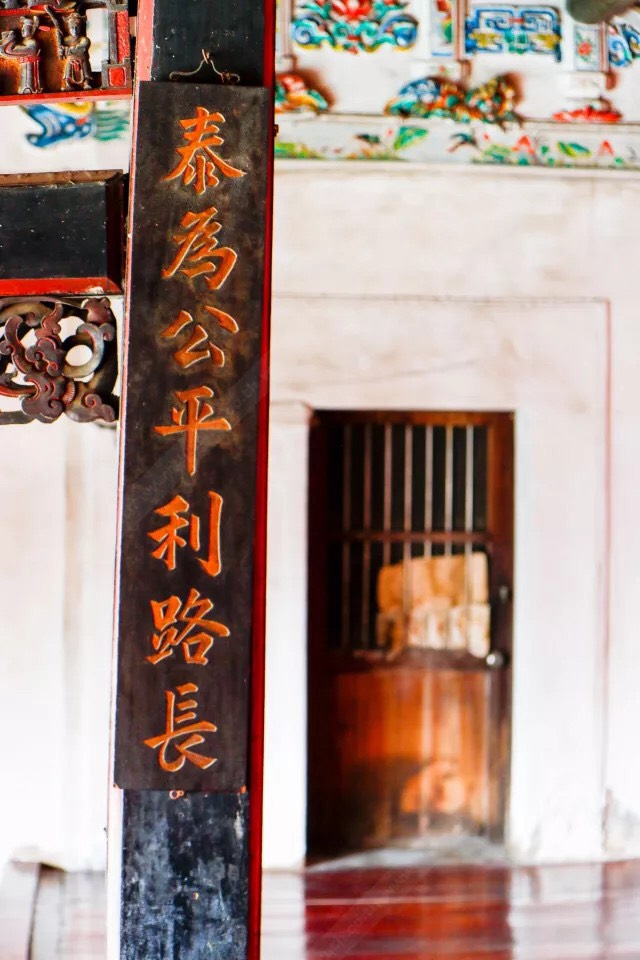 泰為公平利路長